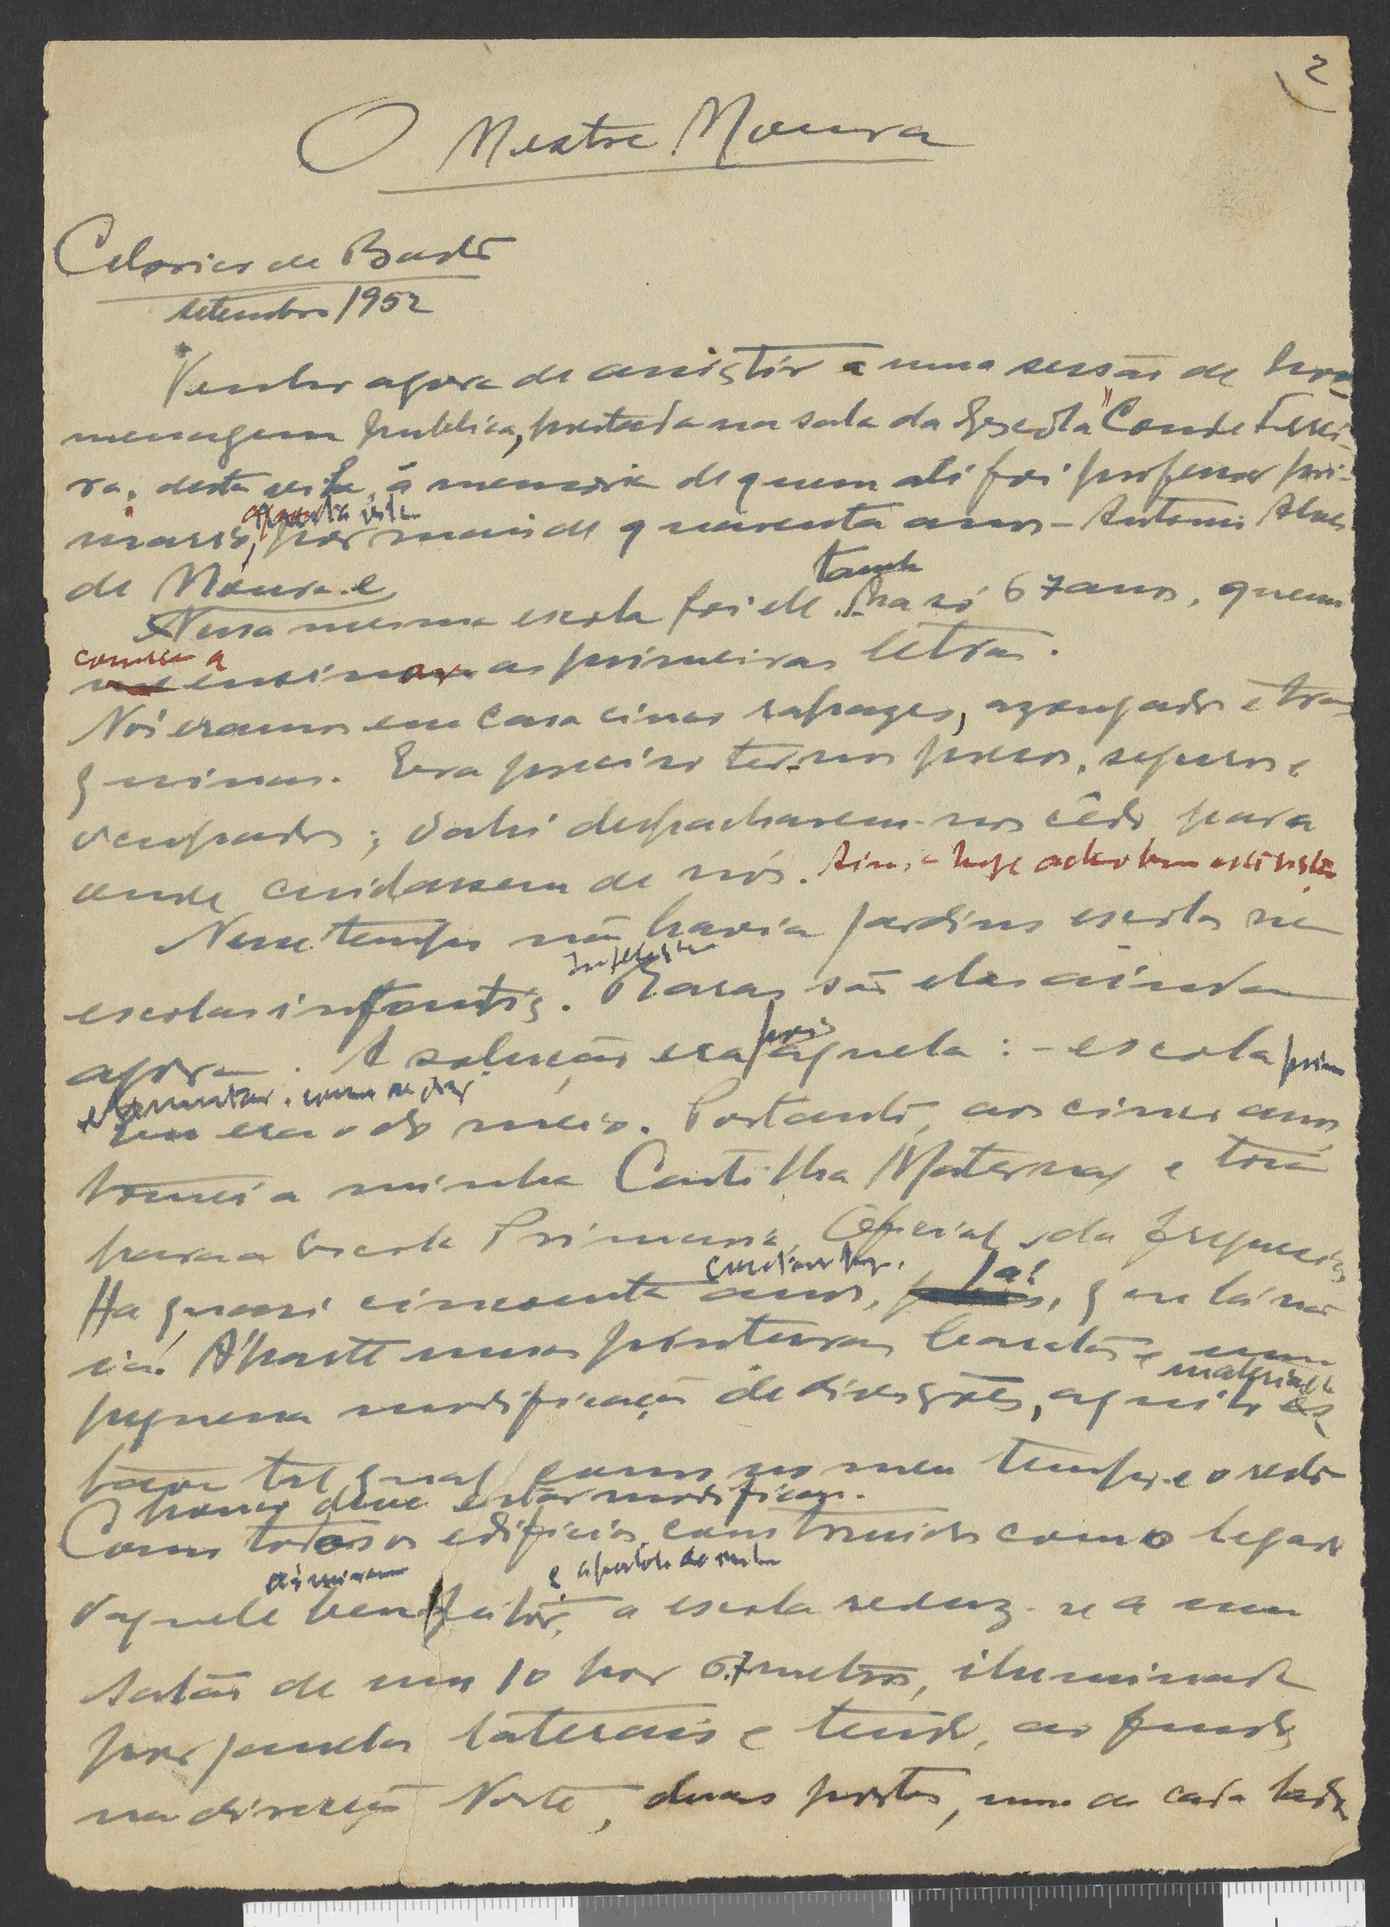 2
O Mestre Moura
Celorico de Basto
setembro/1952
Venho agora de assistir a uma sessão de ho-
menagem publica, prestada na sala da Escola "Conde Ferrei-
ra", desta vila, á memoria de quem ali foi professor pri-
mario, por mais de quarenta anos - Antonio Alves
de Moura. e
Nessa mesma escola foi ele, ha só 67 anos, quem
começou a ensinar as primeiras letras.
Nós eramos em casa cinco rapazes, azougados e tra-
quinas. Era preciso ter-nos presos, seguros e
ocupados; dahi despacharem-nos cêdo para
onde cuidassem de nós. Ainda hoje acho bem
Nesse tempo não havia jardins escolas nem
escolas infantis. Raras são elas ainda
agora. A solução era pois aquela: - escola prim
elementar, como se diz.
Portanto, aos cinco anos,
tomei a minha Cartilha Maternal e
para a Escola Primaria Oficial da freguesia
Ha quasi cincoenta anos, já!, que lá não
ia! Áparte umas pinturas baratas e uma
pequena modificação de divisões, aquilo es-
tava tal qual como no meu tempo e o
deve estar modificado.
Como todos os edificios construidos como legado
daquele benfeitor, a escola reduz-se a um
salão de uns 10 por 6.7 metros, iluminado
por janelas laterais e tendo, ao fundo,
na direcção Norte, duas portas, uma de cada lado